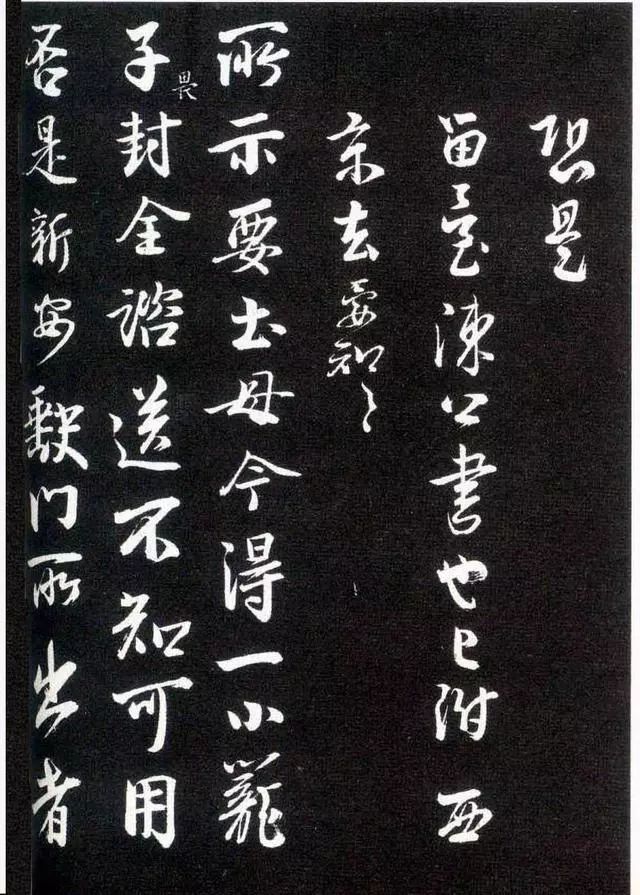 恐是
留臺陳公書也已附西
京去要知〻
所示要土母今得一小籠
子封全諮送不知可用
畏
否是新安歙門所出者